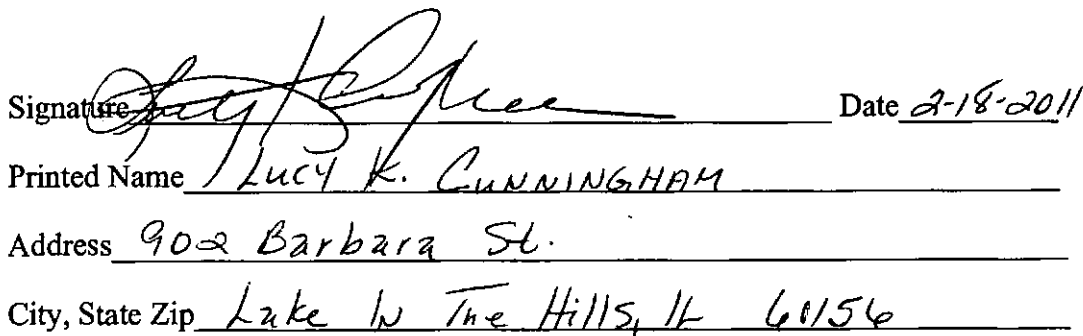 Signature Date 2-18-2011
Printed Name Lucy K. CUNNINGHAM
Address 902 Barbara St.
City, State Zip Lake IN The Hills, IL 60156